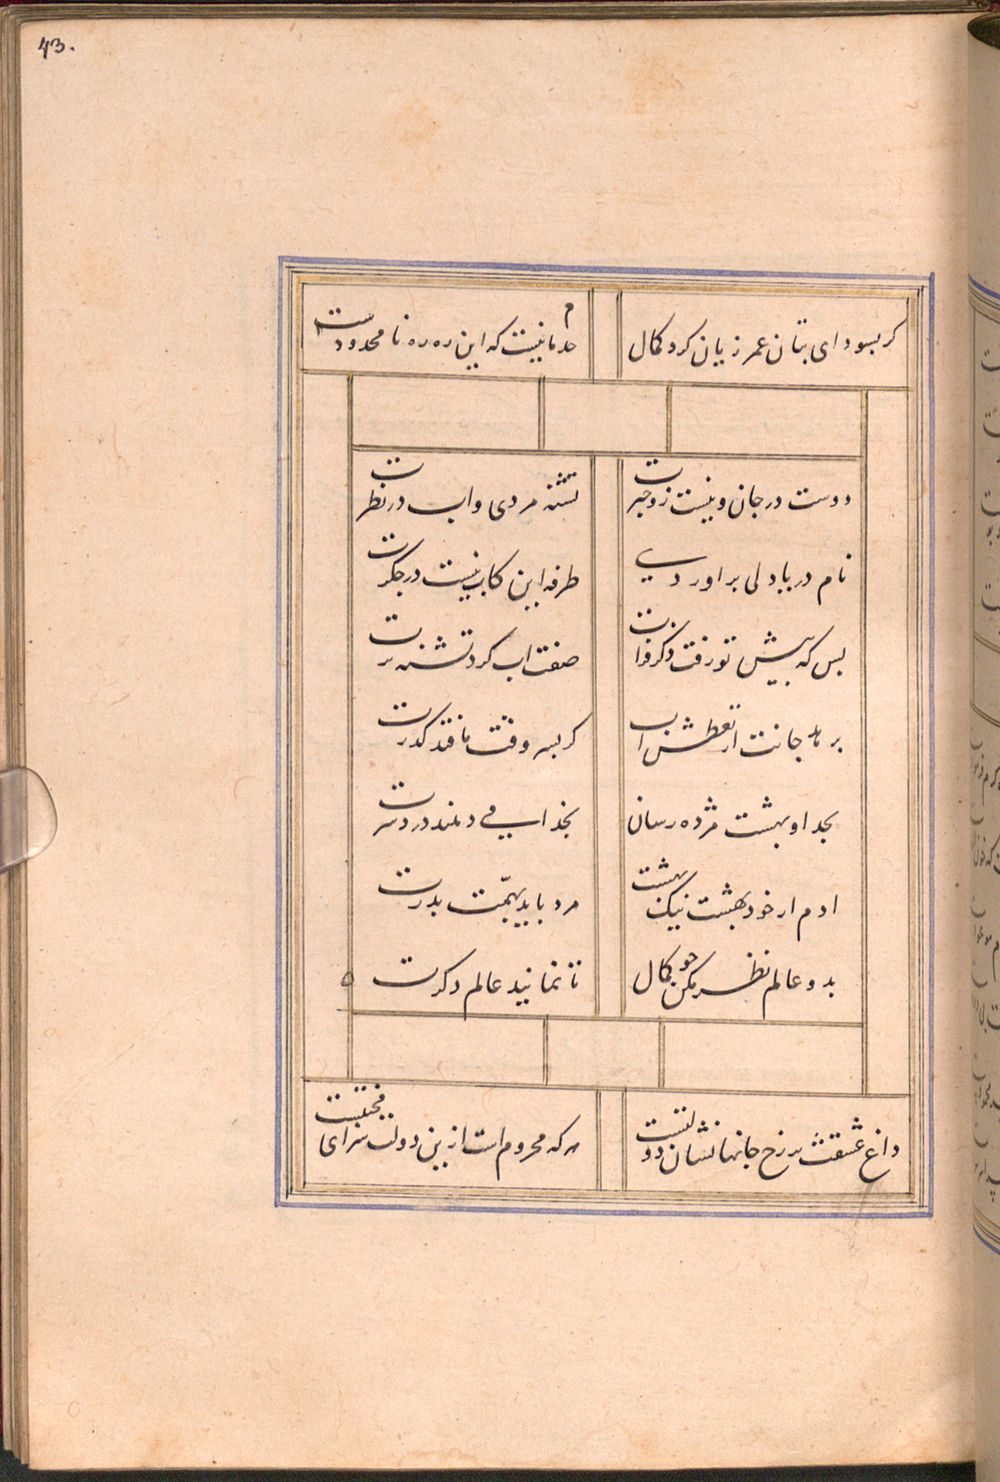 43.
کر بسودای بتان عمر زیان کرد کمال
حد مانیست که این ره ره نا محدودست
دوست در جان و نیست زو خبرت
تشنه مردی و اب در نظرت
نام دریا دلی بر اوردی
طرفه این کاب نیست در جکرت
بس که پیش تو رفت ذکر فرات
صفت اب کرد تشنه ترت
بر جانت از تعطش اب
کر بسر وقت ما فتد کذرت
بجد او بهشت مژده رسان
بخدایی دهند دردسرت
ادم از خود بهشت نیک بهشت
مرد باید بهمت بدرت
بدو عالم نظر مکن چو کمال
تا نمانید عالم دکرت
داغ عشقت بر رخ جانها نشان دولتست
هر که محروم است ازین دولت سزای محنتست